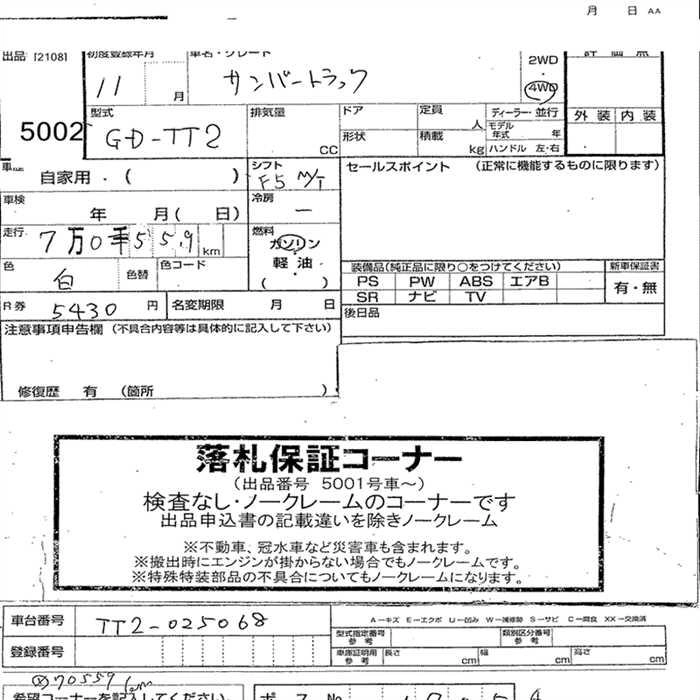 月 日 AA
出品 [2108] 初度登録年月 車名・グレード 2WD 評価点
11 月 サンバートラック 4WD
5002 型式 排気量 ドア 定員 ディーラー・並行 外装 内装
GD-TT2 CC 形状 人 積載 kg モデル年式 年 ハンドル 左・右
車歴 自家用・( ) シフト F5 M/T セールスポイント (正常に機能するものに限ります)
車検 年 月( 日) 冷房 ー
走行 7万0千559 km 燃料 ガソリン・軽油・( )
色 白 色替 色コード
装備品(純正品に限り○をつけてください) 新車保証書
PS PW ABS エアB 有・無
SR ナビ TV
R券 5430 円 名変期限 月 日 後日品
注意事項申告欄 (不具合内容等は具体的に記入して下さい)
修復歴 有 (箇所 )
落札保証コーナー
(出品番号 5001号車~)
検査なし・ノークレームのコーナーです
出品申込書の記載違いを除きノークレーム
※不動車、冠水車など災害車も含まれます。
※搬出時にエンジンが掛からない場合でもノークレームです。
※特殊特装部品の不具合についてもノークレームになります。
車台番号 TT2-025068 A-キズ E-エクボ U-凹み W-補修跡 S-サビ C-腐食 XX-交換済
登録番号 型式指定番号 参考 類別区分番号 参考
車庫証明用 参考 長さ cm 幅 cm 高さ cm
70559 km
希望コーナーを記入してください。 ボス No